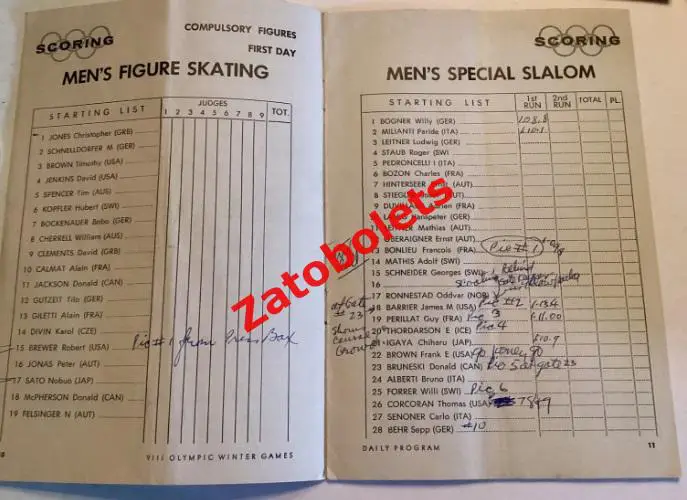 SCORING
COMPULSORY FIGURES
FIRST DAY
MEN'S FIGURE SKATING
STARTING LIST
JUDGES
TOT.
1 2 3 4 5 6 7 8 9
1 JONES Christopher (GRB)
2 SCHNELLDORFER M (GER)
3 BROWN Timothy (USA)
4 JENKINS David (USA)
5 SPENCER Tim (AUS)
6 KOPFLER Hubert (SWI)
7 BOCKENAUER Bebo (GER)
8 CHERRELL William (AUS)
9 CLEMENTS David (GRB)
10 CALMAT Alain (FRA)
11 JACKSON Donald (CAN)
12 GUTZEIT Tilo (GER)
13 GILETTI Alain (FRA)
14 DIVIN Karol (CZE)
15 BREWER Robert (USA)
Pic #1 from Press Box
16 JONAS Peter (AUT)
17 SATO Nobuo (JAP)
18 McPHERSON Donald (CAN)
19 FELSINGER N (AUT)
VIII OLYMPIC WINTER GAMES
SCORING
MEN'S SPECIAL SLALOM
STARTING LIST
1st RUN
2nd RUN
TOTAL
PL.
1 BOGNER Willy (GER) 1.08.8
2 MILIANTI Paride (ITA)
3 LEITNER Ludwig (GER)
4 STAUB Roger (SWI)
5 PEDRONCELLI I (ITA)
6 BOZON Charles (FRA)
7 HINTERSEER (AUT)
8 STIEGL
9 DUVIL (FRA)
Hanspeter (GER)
Mathias (AUT)
OBERAIGNER Ernst (AUT)
BONLIEU Francois (FRA) Pic #1
14 MATHIS Adolf (SWI)
15 SCHNEIDER Georges (SWI) Behind
16
17 RONNESTAD Oddvar (NOR)
at Gate
# 23
shows
course
18 BARRIER James M (USA) Pic #2 1.13.4
19 PERILLAT Guy (FRA) Pic 3 1.11.00
20 THORDARSON E (ICE) Pic 4
21 IGAYA Chiharu (JAP) 1.10.9
22 BROWN Frank E (USA)
23 BRUNESKI Donald (CAN) Pic 5 at gate 23
24 ALBERTI Bruno (ITA)
25 FORRER Willi (SWI) Pic 6
26 CORCORAN Thomas (USA)
27 SENONER Carlo (ITA)
28 BEHR Sepp (GER) #10
DAILY PROGRAM
11
Zatobolets